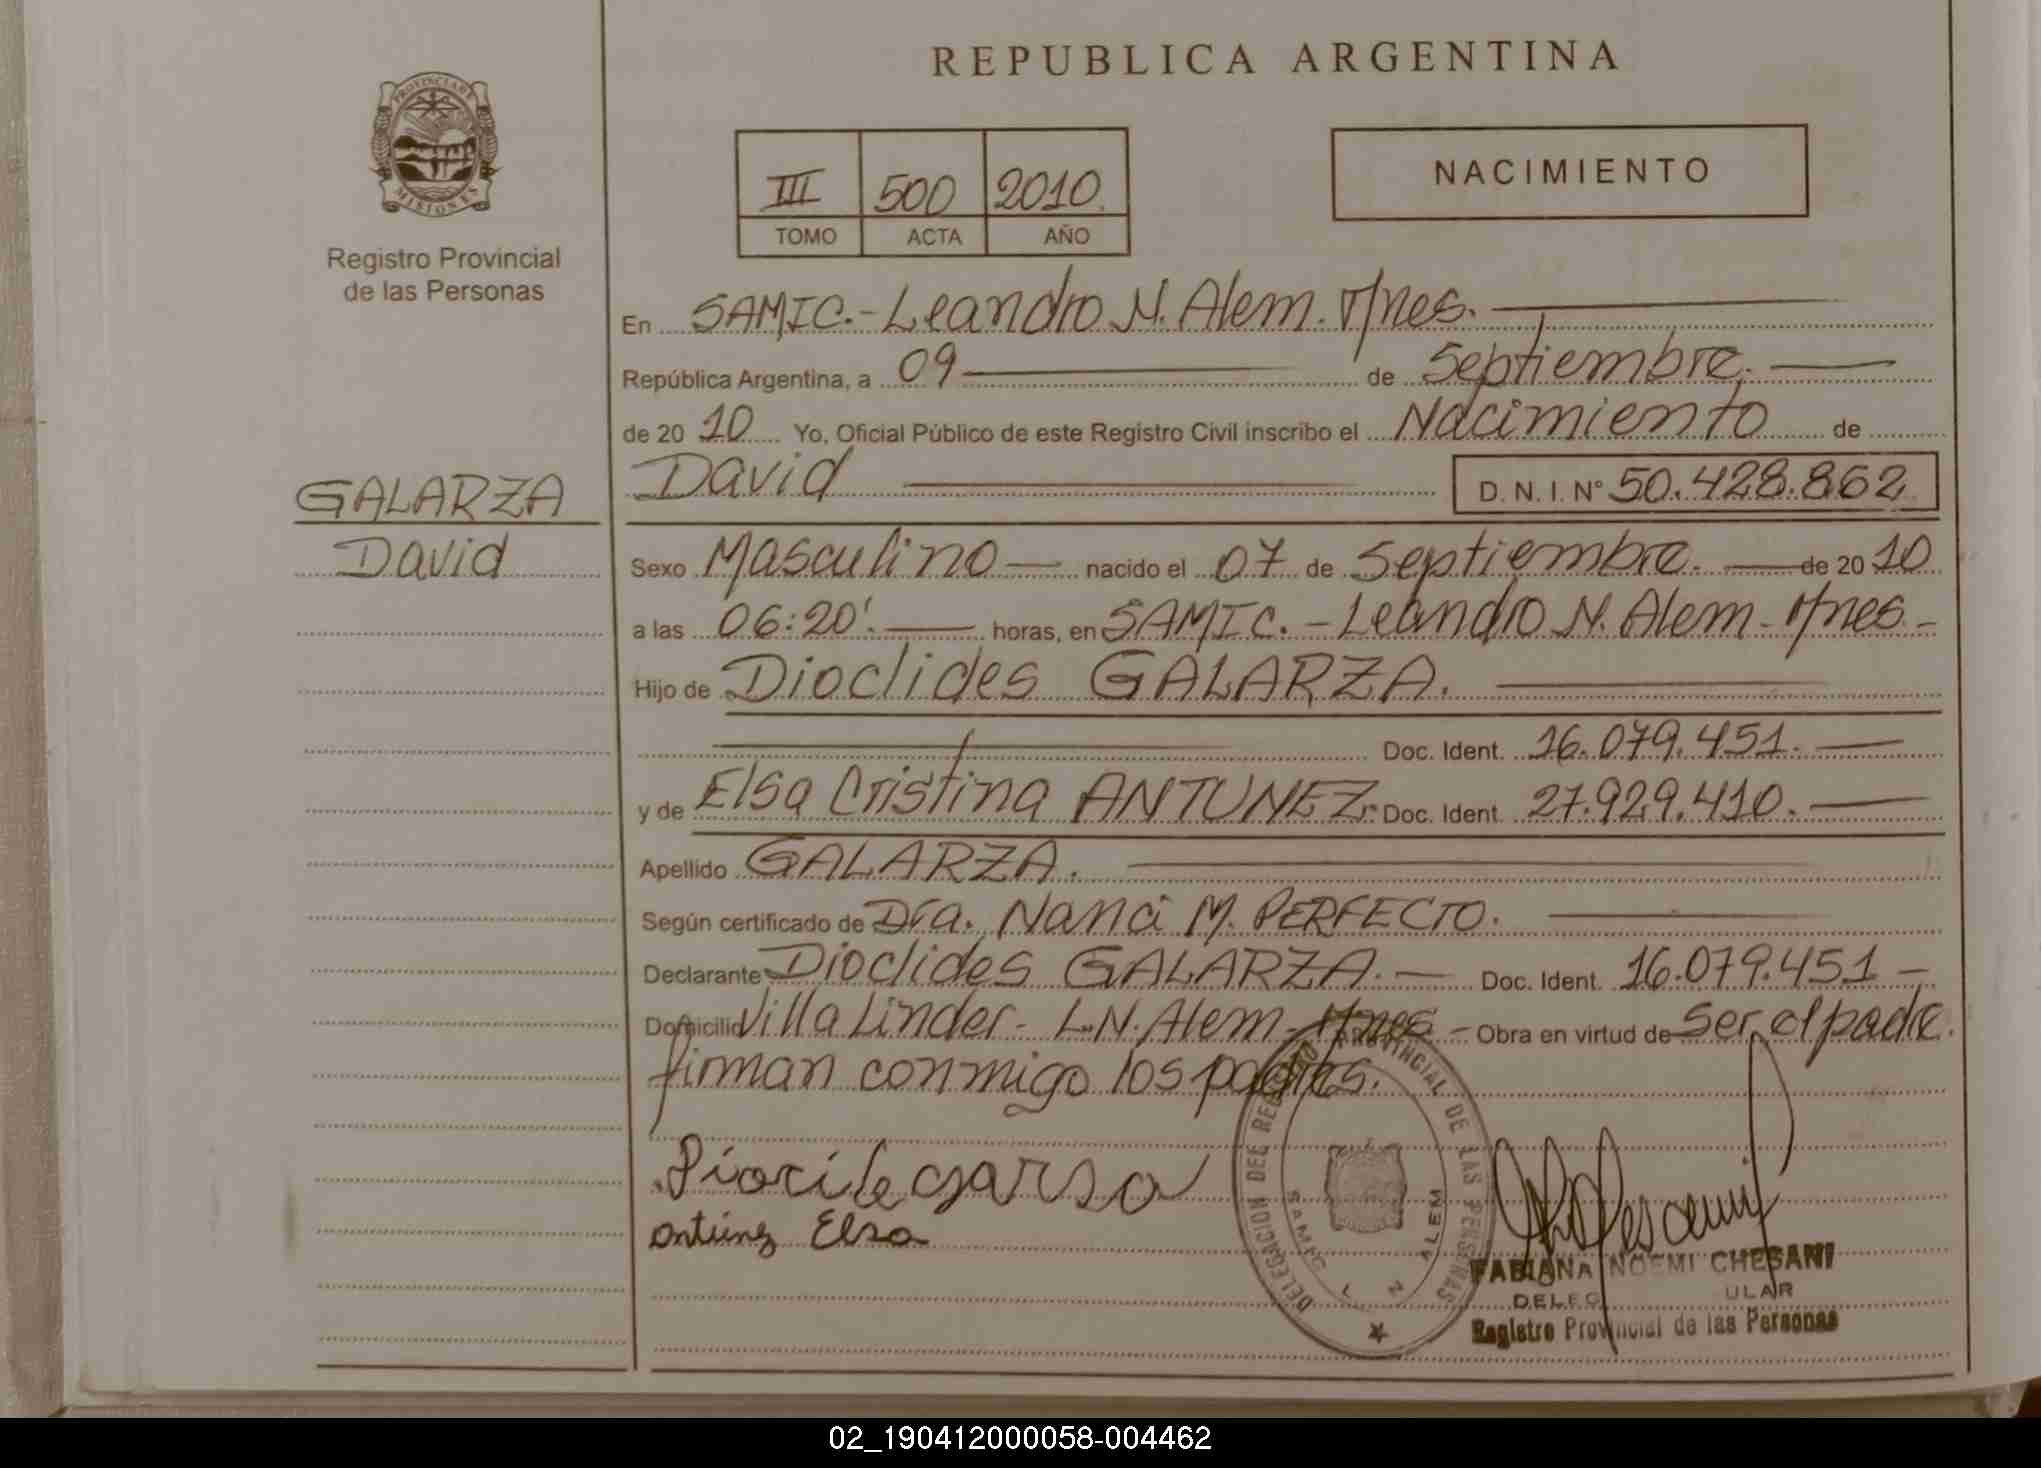 REPUBLICA ARGENTINA
PROVINCIA DE
MISIONES
Registro Provincial
de las Personas
III 500 2010
TOMO ACTA AÑO
NACIMIENTO
En SAMIC.-Leandro N. Alem. Mnes.
República Argentina, a 09 de Septiembre.
de 2010 Yo, Oficial Público de este Registro Civil inscribo el Nacimiento de
GALARZA
David
David D.N.I. Nº 50.428.862
Sexo Masculino nacido el 07 de Septiembre. de 2010
a las 06:20'. horas, en SAMIC. - Leandro N. Alem - Mnes -
Hijo de Dioclides GALARZA.
Doc. Ident. 16.079.451.
y de Elsa Cristina ANTUNEZ. Doc. Ident. 27.929.410.
Apellido GALARZA.
Según certificado de Dra. Nanci M. PERFECTO.
Declarante Dioclides GALARZA. Doc. Ident. 16.079.451
Domicilio Villa Linder - L.N. Alem - Mnes - Obra en virtud de Ser el padre.
firman conmigo los padres.
Elsa
DELEGACION DEL REGISTRO PROVINCIAL DE LAS PERSONAS
SAMIC L N ALEM
FABIANA NOEMI CHESANI
Registro Provincial de las Personas
02_190412000058-004462